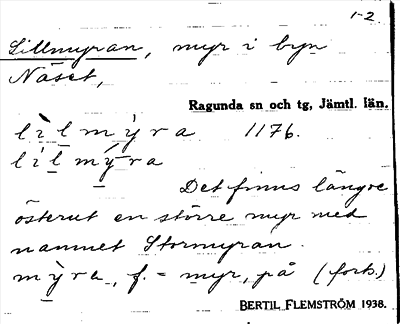 1-2.
Lillmyran, myr i byn
Näset,
Ragunda sn och tg, Jämtl. län.
lìlmy̆̀ra 1176.
lílmy̆́ra
Det finns längre
österut en större myr med
namnet Stormyran.
mỳra, f. = myr, på (forts.)
BERTIL FLEMSTRÖM 1938.